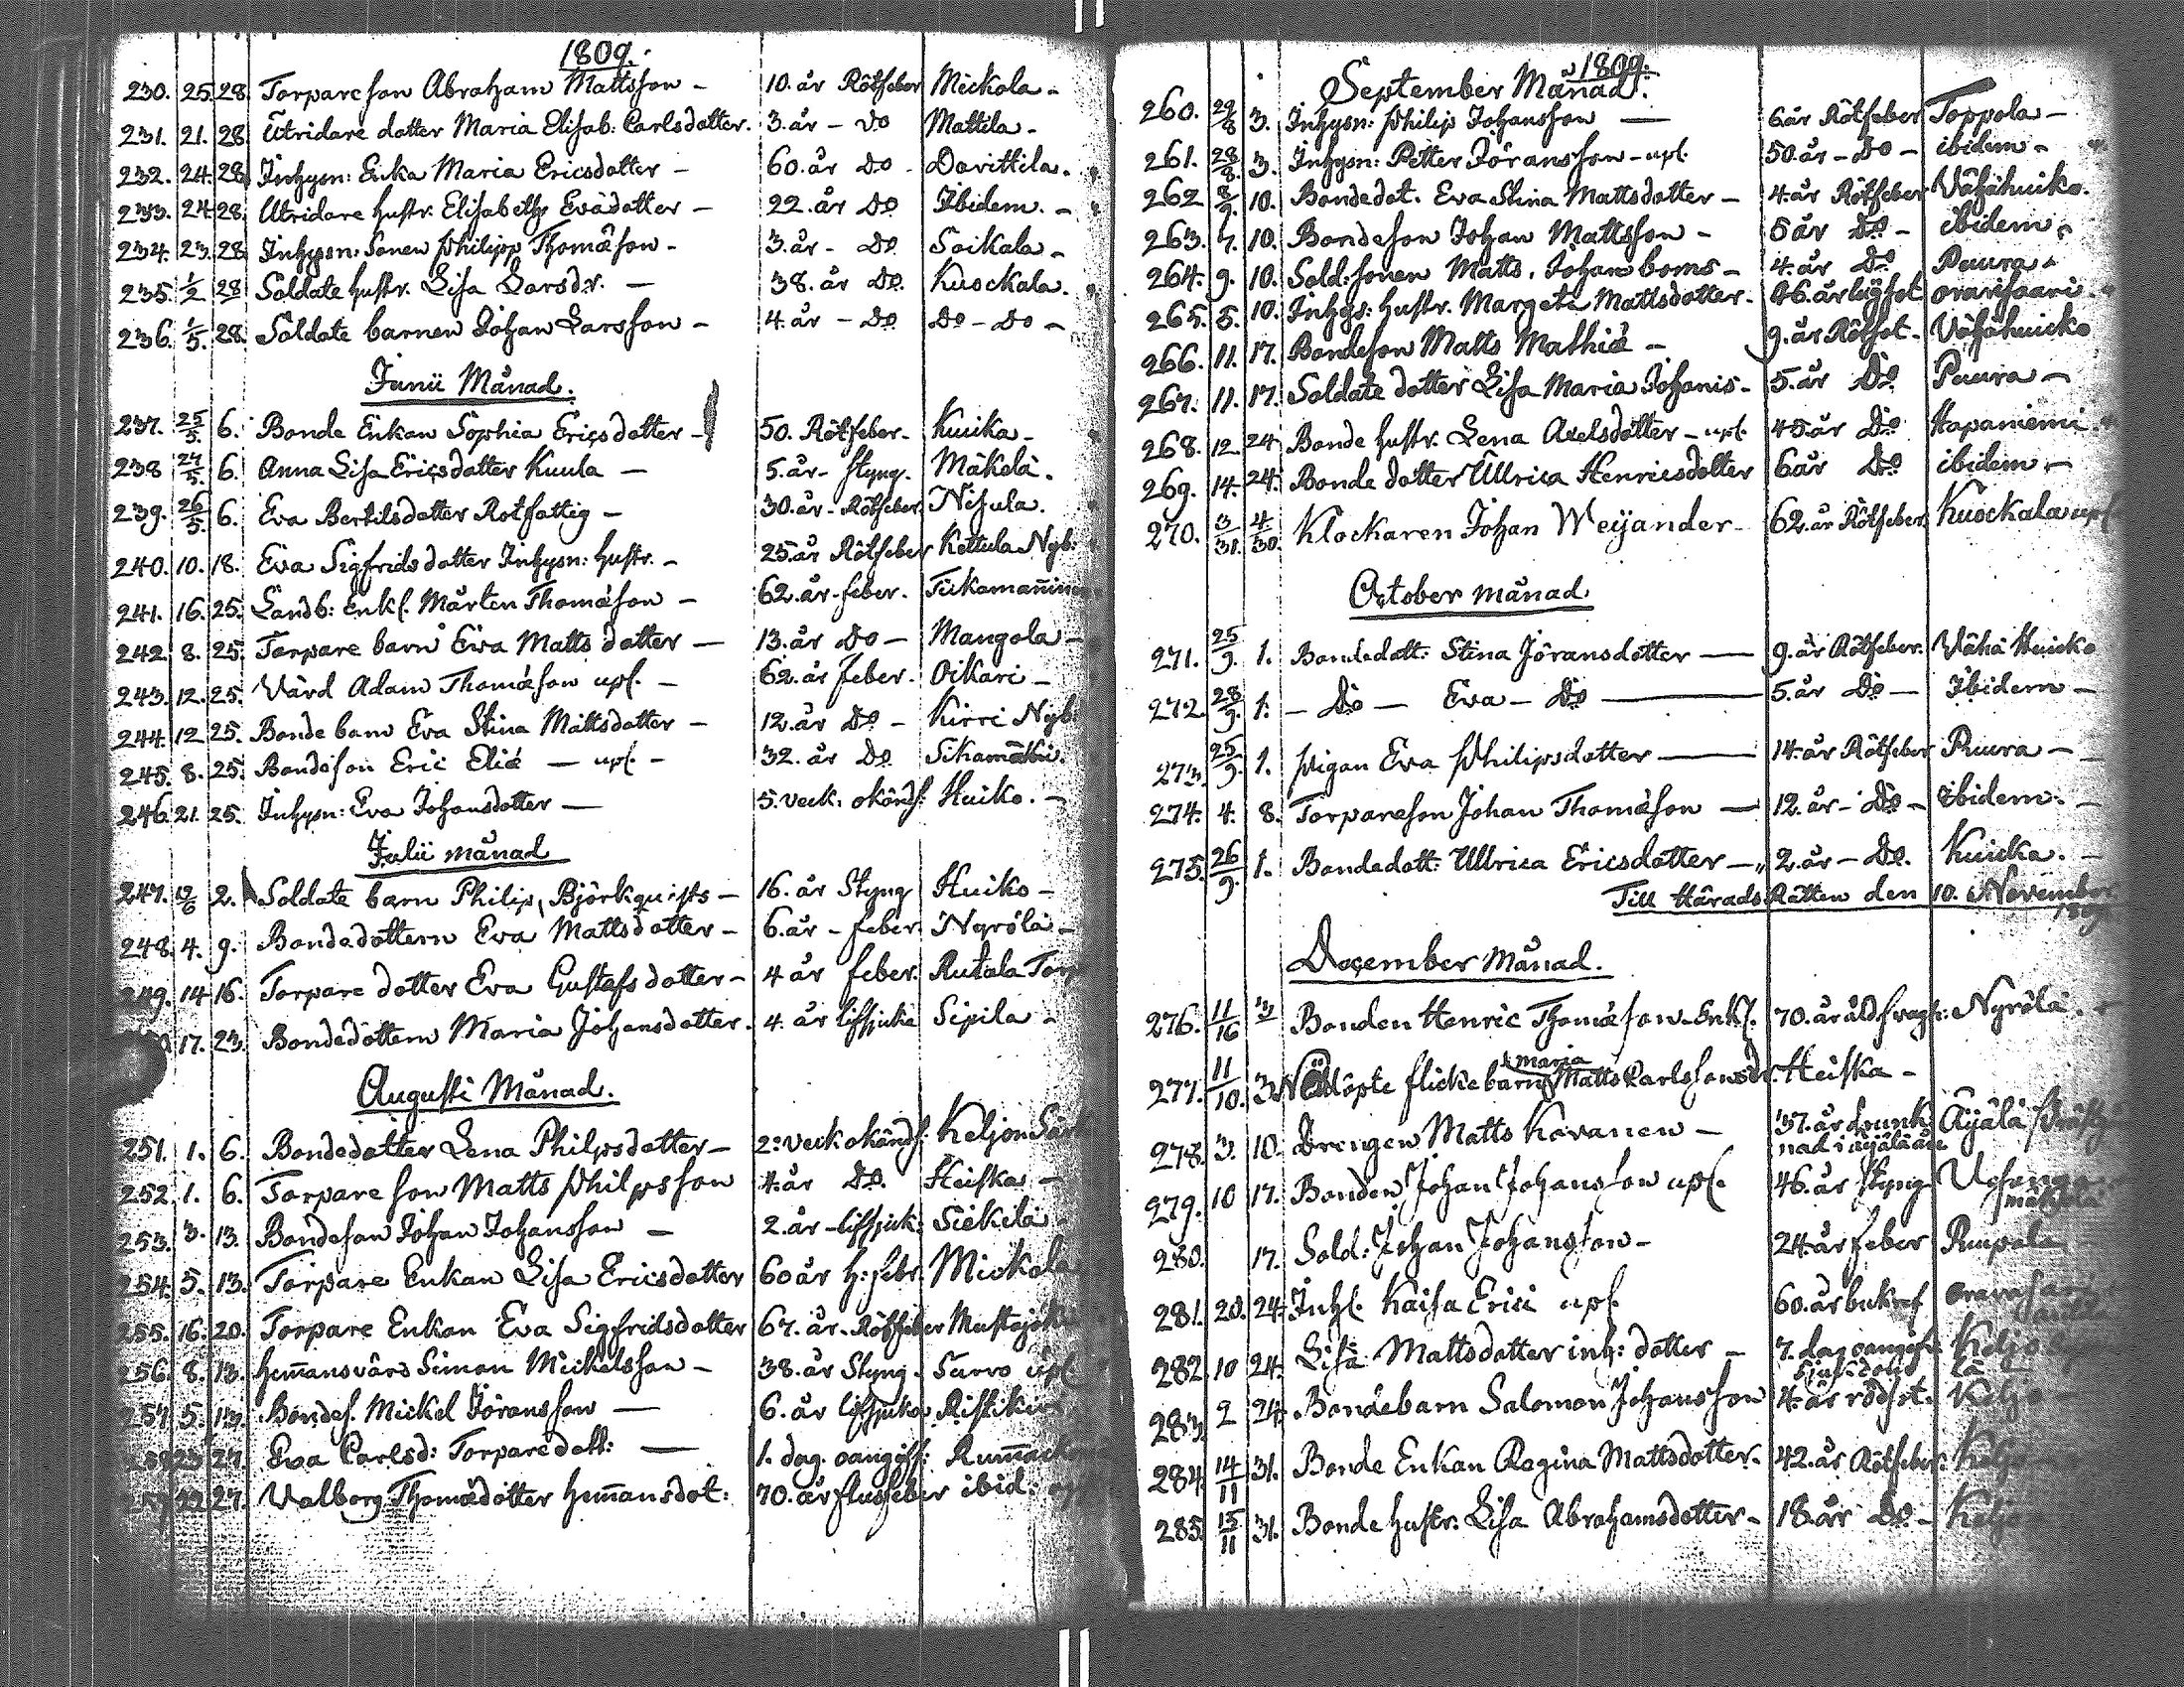 1809.
230. 25. 28. Torpareson Abraham Mattsson - 10. år Rötfeber Mickola -
231. 21. 28 Utridare dotter Maria Elisab: Carlsdotter. 3. år - do Mattila -
232. 24. 28 Inhysn: Enka Maria Ericsdotter - 60. år Do - Davittila.
233. 24 28. Utridare hustr. Elisabeth Evädotter - 22. år Do Ibidem. -
234. 23. 28 Inhysn: Sonen Philipp Thomäson - 3. år - Do Soikala -
235. 1/2 28 Soldate hustr. Lisa Larsdr. - 38. år Do. Kuockala.
236. 1/5. 28. Soldate barnen Johan Larsson - 4. år - Do Do - Do -
Junii Månad.
237. 25/5. 6. Bonde Enkan Sophia Ericsdotter - 50. Rötfeber - Kuika -
238 24/5. 6. Anna Lisa Ericsdotter Kuula - 5. år - styng. Mäkelä.
239. 26/5. 6. Eva Bertilsdotter Rotfattig - 30. år - Rötfeber Nisula.
240. 10. 18. Eva Sigfridsdotter Inhysn: hustr. - 25. år Rötfeber Kettula Nyb:
241. 16. 25. Landb: Enkl. Mårten Thomäson - 62. år - feber.
242 8. 25. Torpare barn Eva Mattsdotter - 13. år Do - Mangola -
243. 12. 25. Värd Adam Thomäson upl. - 62. år feber. Oikari -
244. 12 25. Bonde barn Eva Stina Mattsdotter - 12. år Do - Kirri Nyb:
245. 8. 25. Bondeson Eric Eliæ - upl. - 32. år Do.
246. 21. 25. Inhysn: Eva Johansdotter - 5. veck: okänds: Huiko. -
Julii månad
247. 12/6 2. Soldate barn Philip, Björkquists - 16. år Styng Huiko -
248. 4. 9. Bondedottern Eva Mattsdotter - 6. år - feber. Nyrölä -
249. 14 16. Torpare dotter Eva Gustafsdotter - 4 år feber. Rutala Torp
17. 23. Bondedottern Maria Johansdotter. 4. år lifsjuka Sipila -
Augusti Månad.
251. 1. 6. Bondedotter Lena Philpsdotter - 2: veck okänds: Keljon
252. 1. 6. Torpareson Matts Philpsson 4. år Do. Heiska -
253. 3. 13. Bondeson Johan Johansson - 2. år - lifsjuk: Siekilä -
254. 5. 13. Torpare Enkan Lisa Ericsdotter 60 år h: febr. Mickola
255. 16. 20. Torpare Enkan Eva Sigfridsdotter 67. år. Rötfeber Mustajoki
256. 8. 13. hem̄ansvärd Simon Mickelsson - 38. år Styng. Survo upl.
257. 5. 13. Bondes. Mickel Jöransson - 6. år lifsjuka
23 27. Eva Carlsd: Torparedott: - 1. dag. oangifs:
22 27. Valborg Thomädotter hem̄ansdot: 70. år flusfeber ibid:
1809.
September Månad.
260. 29/8 3. Inhysn: Philip Johansson - 6 år Rötfeber Toppola -
261. 28/8. 3. Inhysn: Petter Jöransson - upl. 50. år - Do - ibidem -
262 8/9. 10. Bondedot. Eva Stina Mattsdotter - 4. år Rötfeber Vähähuiko.
263. 7. 10. Bondeson Johan Mattsson - 5 år Do - ibidem.
264. 9. 10. Sold: sonen Matts. Johan boms - 4. år Do Puura -
265. 5. 10. Inhys: hustr. Margeta Mattsdotter. Oravisaari.
266. 11. 17. Bondeson Matts Mathiæ - 9. år Rötfot. Vähähuicko
267. 11. 17. Soldate dotter Lisa Maria Johanis - 5. år Do Puura -
268. 12 24 Bonde hustr. Lena Axelsdotter - upl. 45. år Do Hapaniemi.
269. 14. 24. Bonde dotter Ullrica Henricsdotter 6 år Do ibidem -
270. 3/31. 4/30. Klockaren Johan Weijander - 62. år Rötfeber Kuockala upl
October månad.
271. 25/9. 1. Bondedott: Stina Jöransdotter - 9. år Rötfeber. Vähä Huicko
272. 28/9. 1. - Do - Eva - Do - 5. år Do - Ibidem -
273. 25/9. 1. Pigan Eva Philipsdotter - 14. år Rötfeber Puura -
274. 4. 8. Torpareson Johan Thomäson - 12. år - Do - Ibidem. -
275. 26/9 1. Bondedott: Ullrica Ericsdotter - 2. år - Do. Kuicka. -
Till Härads Rätten den 10. November
1809
December Månad.
276. 11/16 3 Bonden Henric Thomäson - Enkl. 70. år ålds Nyrölä.
277. 11/10. 3. Nöddöpte flickebarn Maria Matts Carlssonsdr. Heiska -
278. 3. 10. Drengen Matts Kovanen - 37. år drunk Äijälä
nad i äijälä åen
279. 10 17. Bonden Johan Johansson upl. 46. år styng
280. 17. Sold: Johan Johansson - 24 år feber Puupola
281. 20. 24. Inhl. Kaisa Erici upl. 60. år Oravasari
282. 10 24. Lisa Mattsdotter inh: dotter - 7. dag oangifs: Keljo
283. 2 24. Bondebarn Salomon Johansson 4. år rödsot. Keljo
284. 14/11 31. Bonde Enkan Regina Mattsdotter. 42. år Rötfeber: Keljo
285. 15/11 31. Bonde hustr: Lisa Abrahamsdotter - 18. år Do. - Keljo